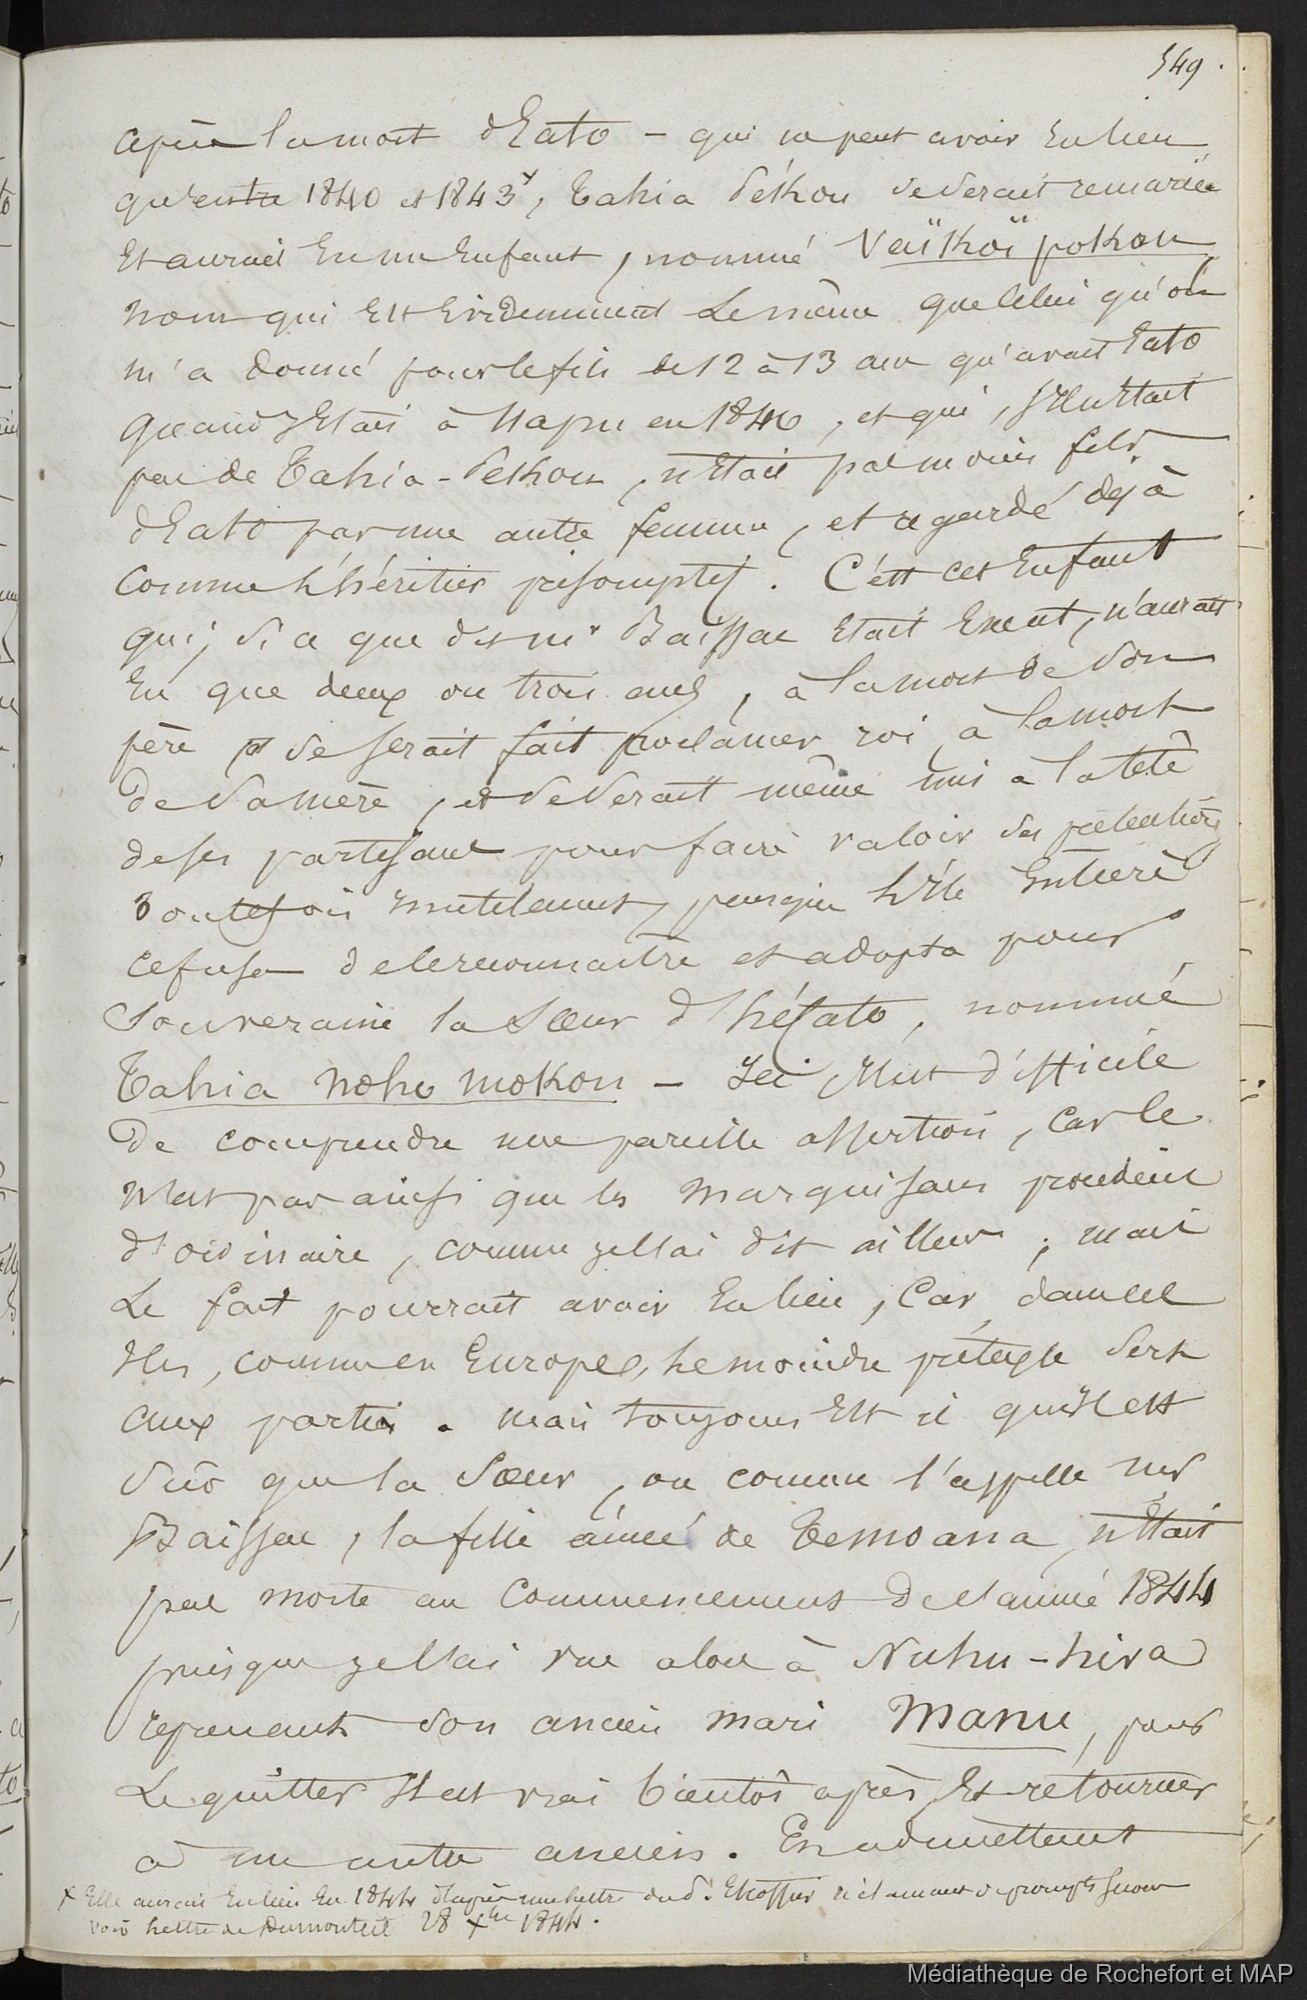 349.
après la mort d'Eato – qui ne peut avoir eu lieu
qu'entre 1840 et 1843 x, Tahia Pekou se serait remariée
et aurait eu un enfant, nommé Vaïkoï pokou,
nom qui est évidemment le même que celui qu'on
m'a donné pour le fils de 12 à 13 ans qu'avait Eato
quand j'étais à Uapu en 1840, et qui, s'il n'était
pas de Tahia-Pekou, n'était pas moins fils
d'Eato par une autre femme, et regardé déjà
comme l'héritier présomptif. C'est cet enfant
qui, si ce que dit mr Baissac était exact, n'aurait
eu que deux ou trois ans, à la mort de son
père se serait fait proclamer roi à la mort
de sa mère, et se serait même mis à la tête
de ses partisans pour faire valoir ses prétentions
toutefois inutilement, puisque l'île entière
refusa de le reconnaître et adopta pour
souveraine la sœur d'héato, nommée
Tahia noho mokou – Ici il est difficile
de comprendre une pareille assertion, car ce
n'est pas ainsi que les marquisans procèdent
d'ordinaire, comme je l'ai dit ailleurs ; mais
le fait pourrait avoir eu lieu, car, dans ces
îles, comme en Europe, le moindre prétexte sert
aux partis. Mais toujours est il qu'il est
sûr que la sœur, ou comme l'appelle mr
Baissac, la fille aînée de Temoana, n'était
pas morte au commencement de l'année 1844
puisque je l'ai vue alors à Nuhu-hiva
reprenant son ancien mari Manu, pour
le quitter il est vrai bientôt après et retourner
à un autre ancien. En admettant
x Elle aurait eu lieu en 1844 d'après une lettre du d.
voir lettre de Dumonteil 28 Xbre 1844.
Médiathèque de Rochefort et MAP